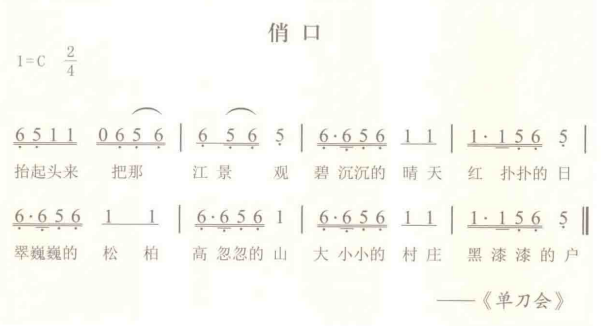 俏口
1=C 2/4
6 5 1 1 0 6 5 6 | 6 5 6 5 | 6·6 5 6 1 1 | 1·1 5 6 5 |
抬起头来 把那 江景 观 碧沉沉的 晴天 红扑扑的 日
6·6 5 6 1 1 | 6·6 5 6 1 | 6·6 5 6 1 1 | 1·1 5 6 5 ‖
翠巍巍的 松柏 高忽忽的 山 大小小的 村庄 黑漆漆的 户
——《单刀会》